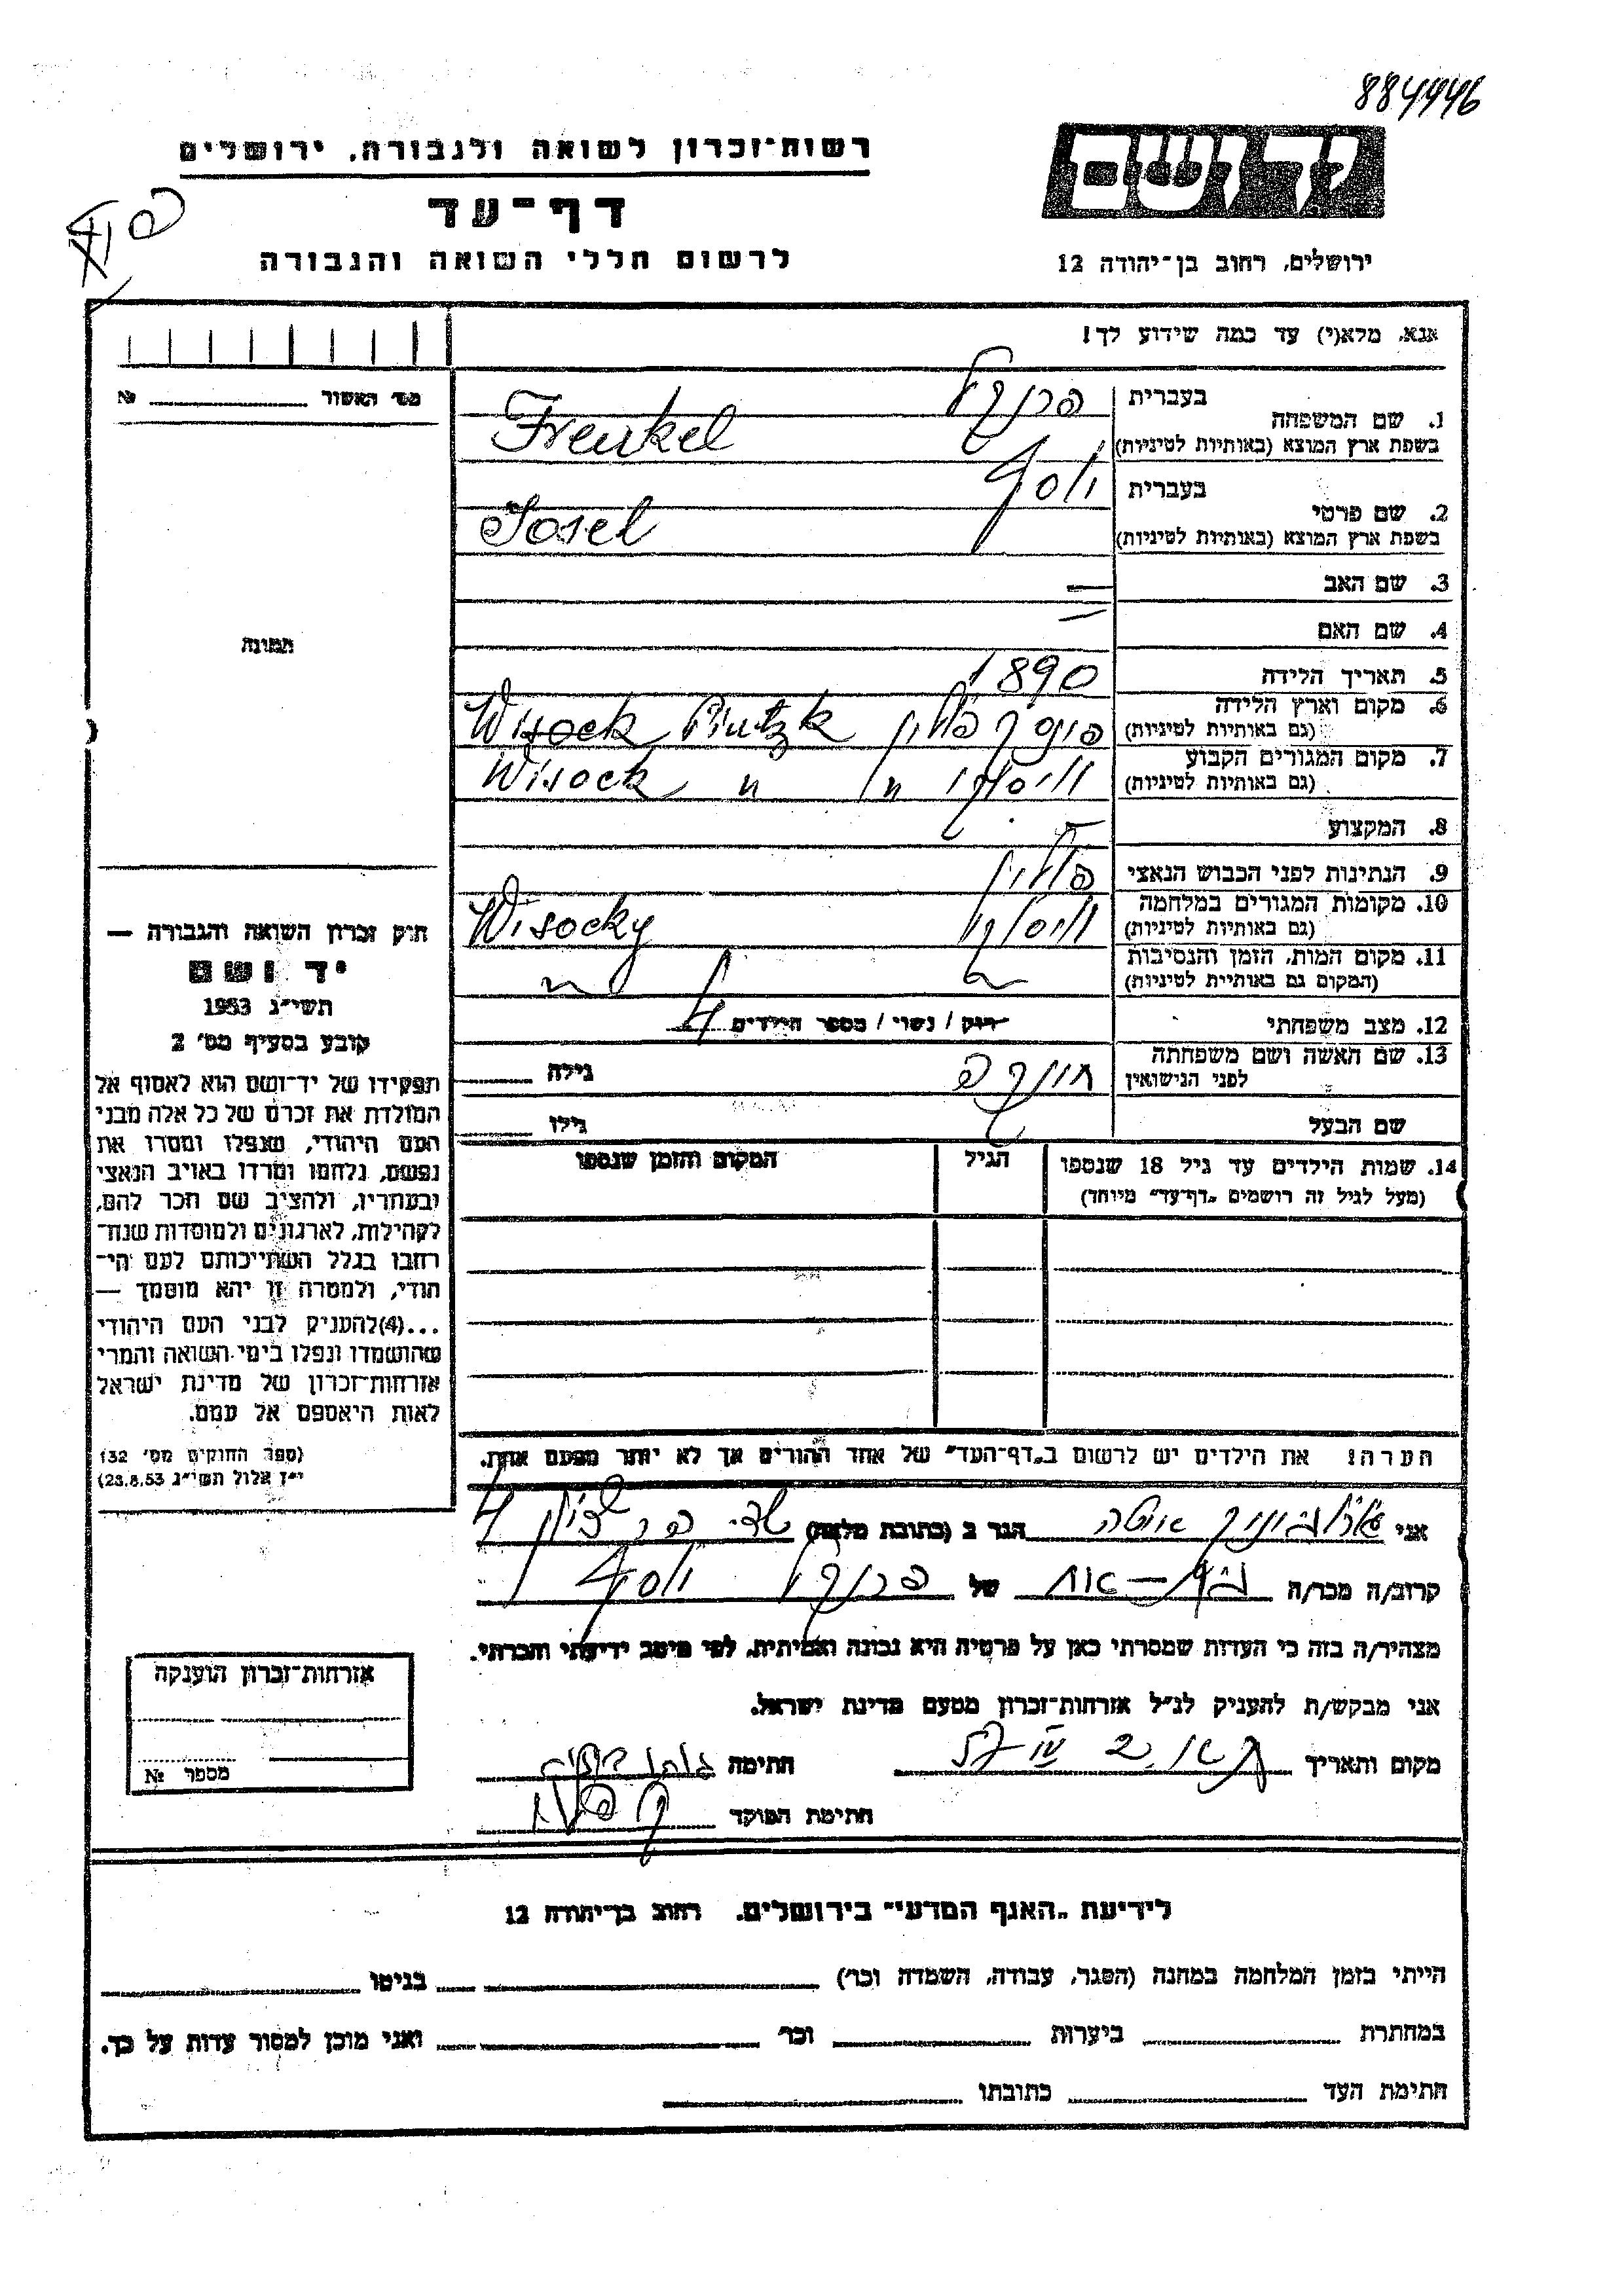 884446
רשות־זכרון לשואה ולגבורה, ירושלים
יד ושם
דף־עד
לרשום חללי השואה והגבורה
ירושלים, רחוב בן־יהודה 12
אנא, מלא(י) עד כמה שידוע לך!
מס' האשור № 
1. שם המשפחה
בעברית פרנקל
בשפת ארץ המוצא (באותיות לטיניות) Frenkel
2. שם פרטי
בעברית יוסף
בשפת ארץ המוצא (באותיות לטיניות) Josel
3. שם האב —
4. שם האם —
תמונה
5. תאריך הלידה 1890
6. מקום וארץ הלידה
(גם באותיות לטיניות) פינסק פולין Wisock Pintzk
7. מקום המגורים הקבוע
(גם באותיות לטיניות) ויסוקי " Wisock "
8. המקצוע —
9. הנתינות לפני הכבוש הנאצי פולין
10. מקומות המגורים במלחמה
(גם באותיות לטיניות) ויסוקי Wisocky
11. מקום המות, הזמן והנסיבות
(המקום גם באותיית לטיניות)
12. מצב משפחתי רווק / נשוי / מספר הילדים 4
13. שם האשה ושם משפחתה
לפני הנישואין גילה
שם הבעל גילו
14. שמות הילדים עד גיל 18 שנספו הגיל המקום והזמן שנספו
(מעל לגיל זה רושמים „דף־עד" מיוחד)
הערה: את הילדים יש לרשום ב„דף־העד" של אחד ההורים אך לא יותר מפעם אחת.
חוק זכרון השואה והגבורה —
יד ושם
תשי"ג 1953
קובע בסעיף מס' 2
תפקידו של יד־ושם הוא לאסוף אל
המולדת את זכרם של כל אלה מבני
העם היהודי, שנפלו ומסרו את
נפשם, נלחמו ומרדו באויב הנאצי
ובעוזריו, ולהציב שם וזכר להם,
לקהילות, לארגונים ולמוסדות שנח־
רבו בגלל השתייכותם לעם הי־
הודי, ולמטרה זו יהא מוסמך —
...(4)להעניק לבני העם היהודי
שהושמדו ונפלו בימי השואה והמרי
אזרחות־זכרון של מדינת ישראל
לאות היאספם אל עמם.
(ספר החוקים מס' 132
י"ז אלול תשי"ג 23.8.53)
אני הגר ב (כתובת מלאה)
קרוב/ה מכר/ה של פרנקל יוסף
מצהיר/ה בזה כי העדות שמסרתי כאן על פרטיה היא נכונה ואמיתית, לפי מיטב ידיעתי והכרתי.
אני מבקש/ת להעניק לנ"ל אזרחות־זכרון מטעם מדינת ישראל.
מקום ותאריך חתימה
חתימת הפוקד
אזרחות־זכרון הוענקה
מספר №
לידיעת „האגף המדעי" בירושלים, רחוב בן־יהודה 12
הייתי בזמן המלחמה במחנה (הסגר, עבודה, השמדה וכו') בגיטו
במחתרת ביערות וכו' ואני מוכן למסור עדות על כך.
חתימת העד כתובתו